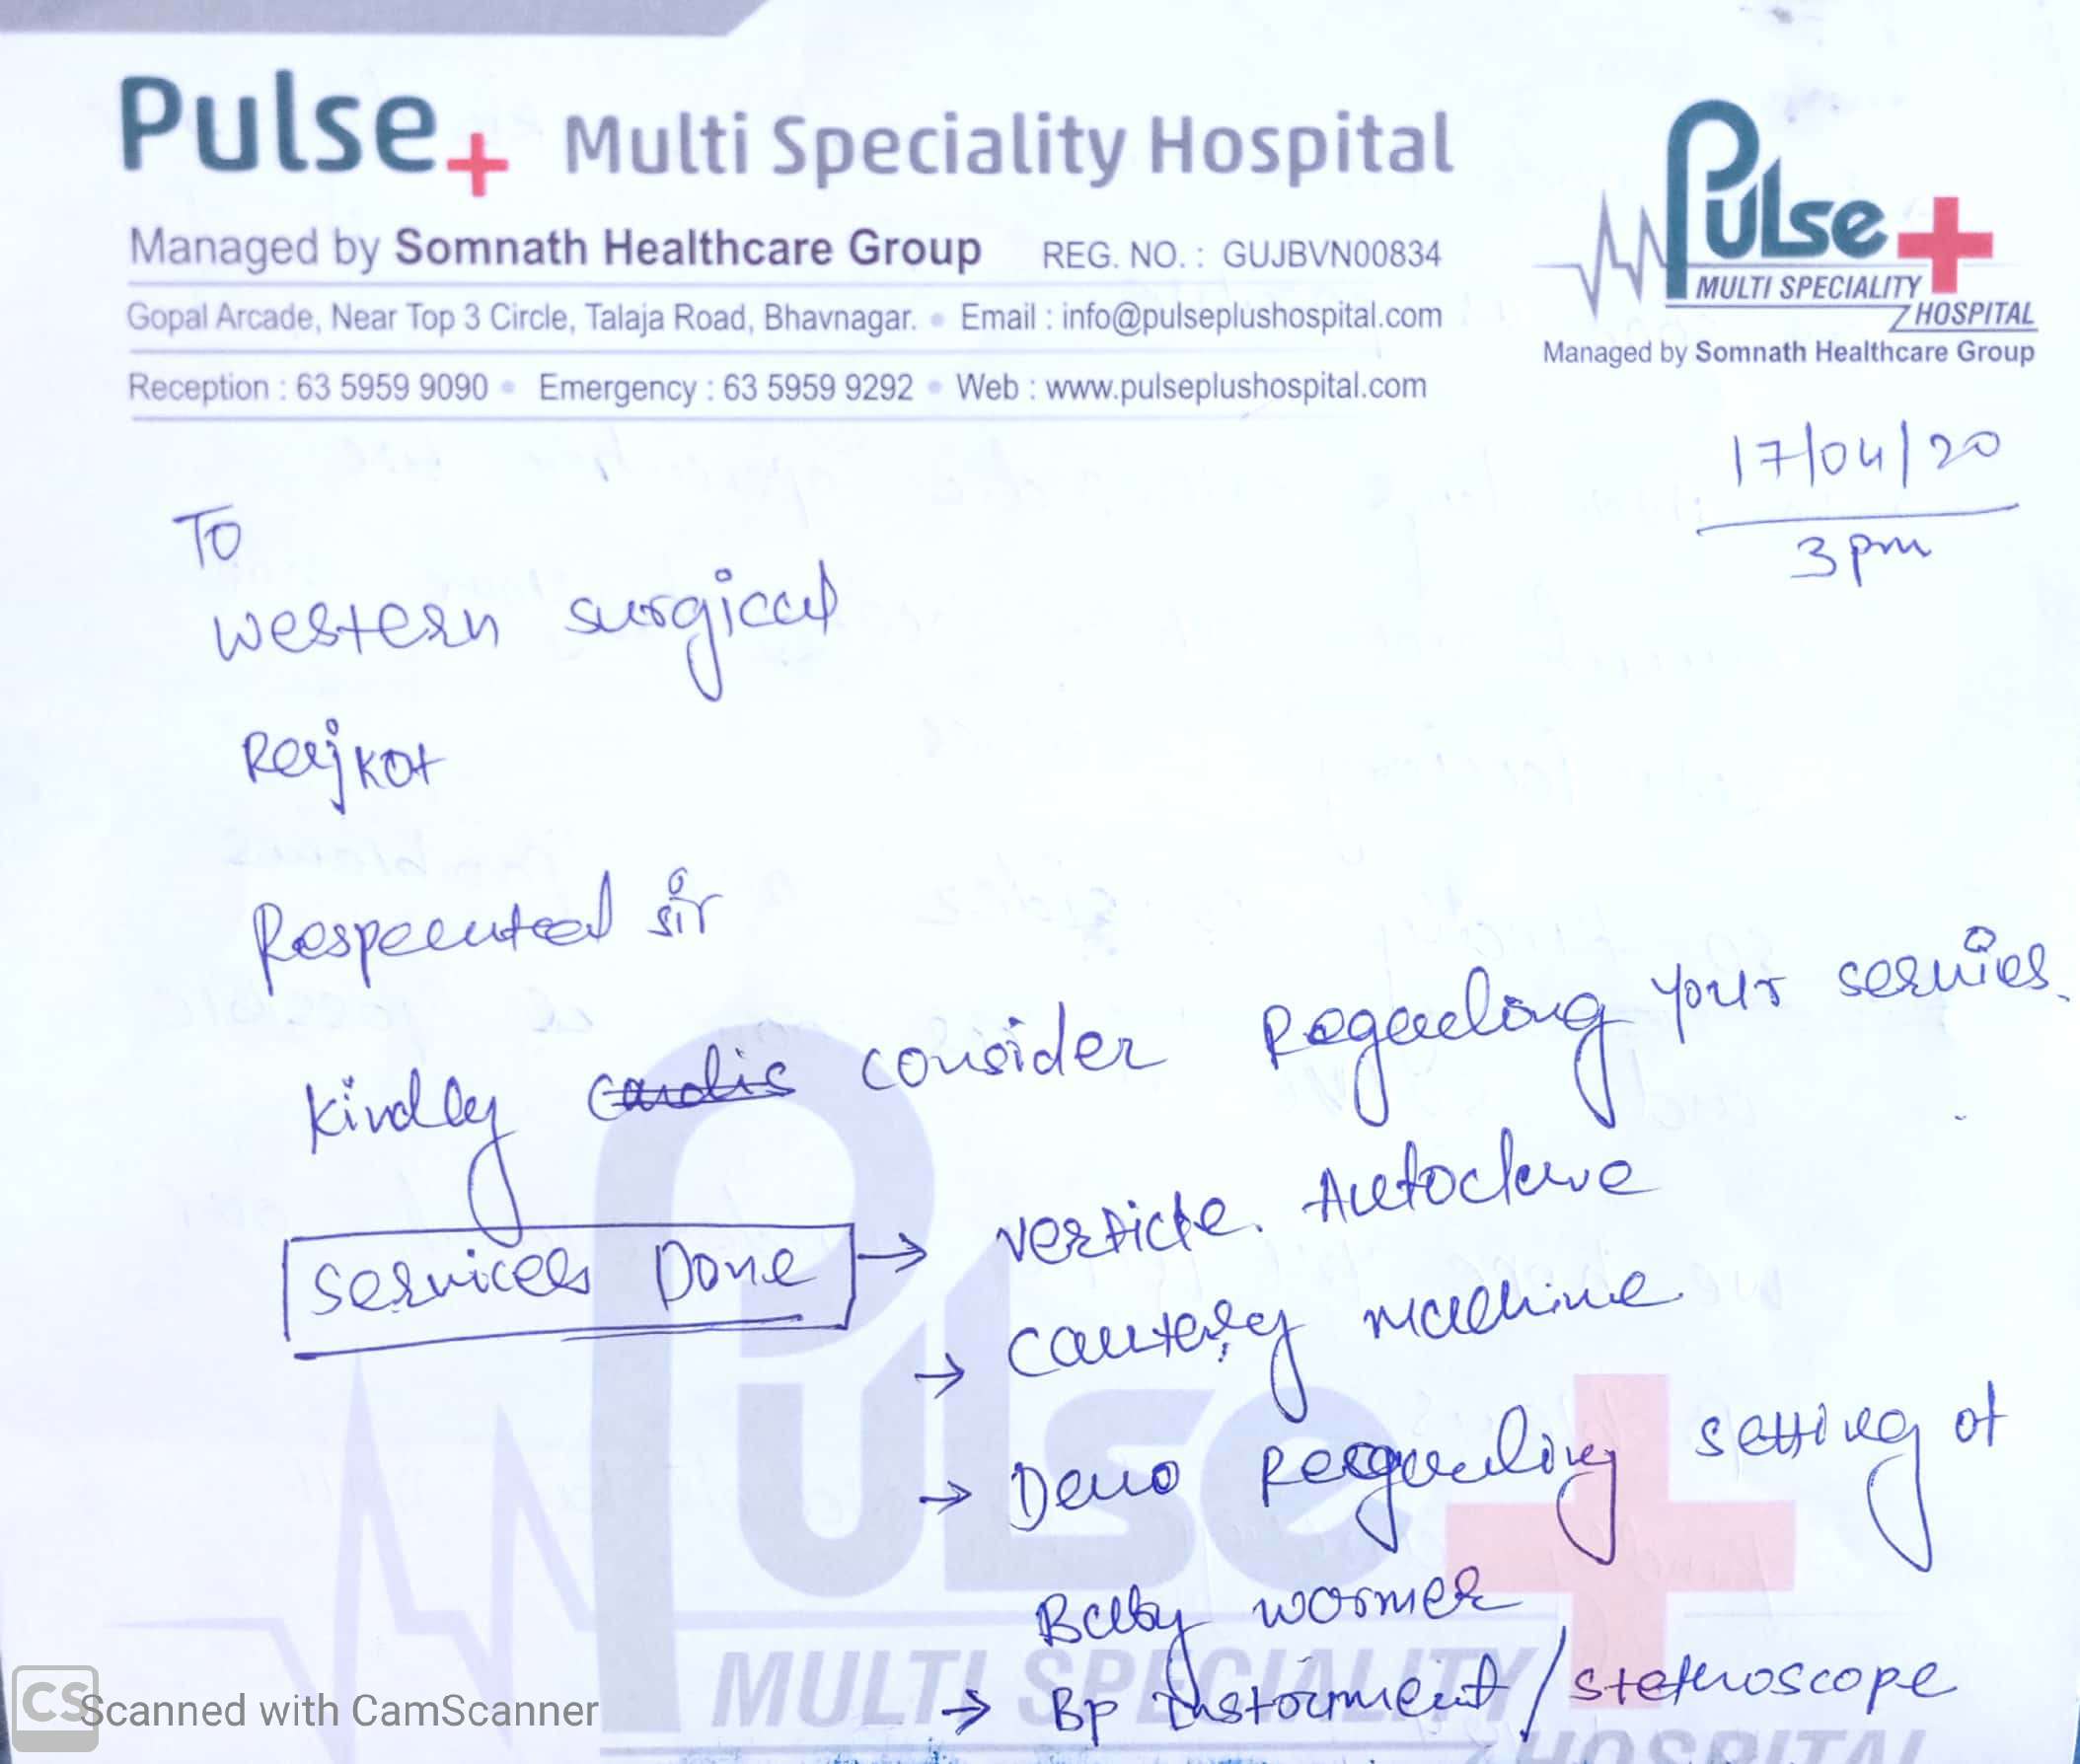 Pulse+ Multi Speciality Hospital
Managed by Somnath Healthcare Group REG. NO. : GUJBVN00834
Gopal Arcade, Near Top 3 Circle, Talaja Road, Bhavnagar. • Email : info@pulseplushospital.com
Reception : 63 5959 9090 • Emergency : 63 5959 9292 • Web : www.pulseplushospital.com
Pulse+
MULTI SPECIALITY
HOSPITAL
Managed by Somnath Healthcare Group
17/04/20
3 pm
To
western surgical
Rajkot
Respeceuted sir
Kindly consider Regarding your servies.
Services Done → verticle. Autoclave
→ Cautery machine
→ Demo Regarding setting of
Baby wormer
→ Bp instorument / stethoscope
Pulse+
MULTI SPECIALITY
HOSPITAL
CS Scanned with CamScanner